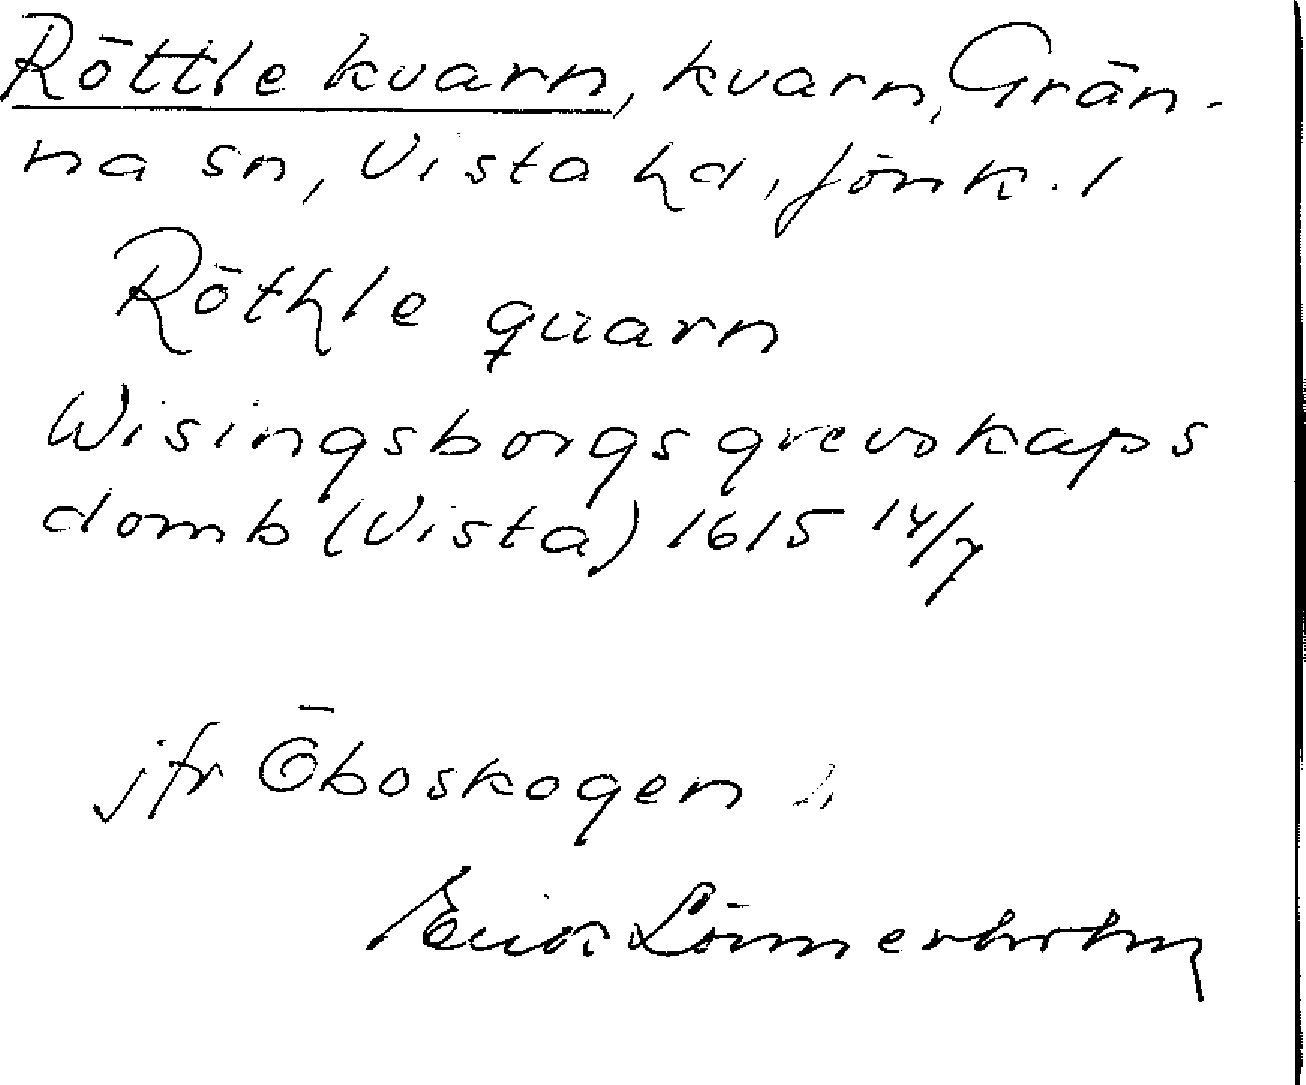 Röttle kvarn, kvarn, Grän-
na sn, Vista hd, Jönk. l
Röthle quarn
Wisingsborgs grevskaps
domb (Vista) 1615 14/7
jfr Öboskogen
Erik Lönnerholm